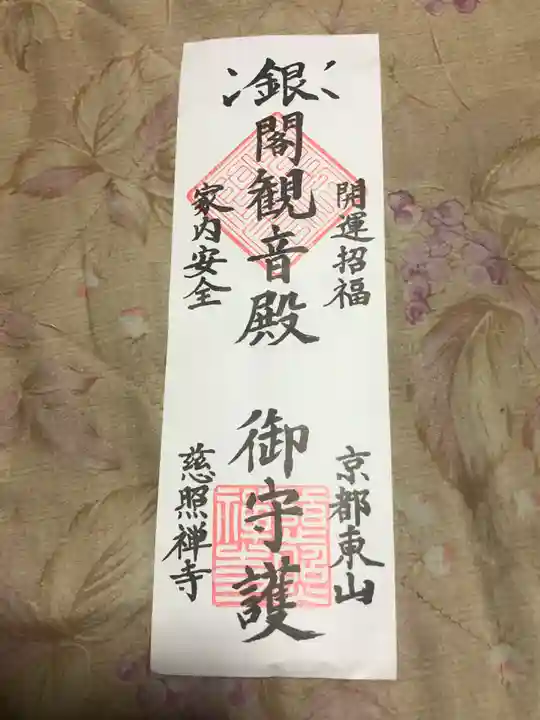 開運招福
京都東山
銀閣観音殿
御守護
家内安全
慈照禅寺